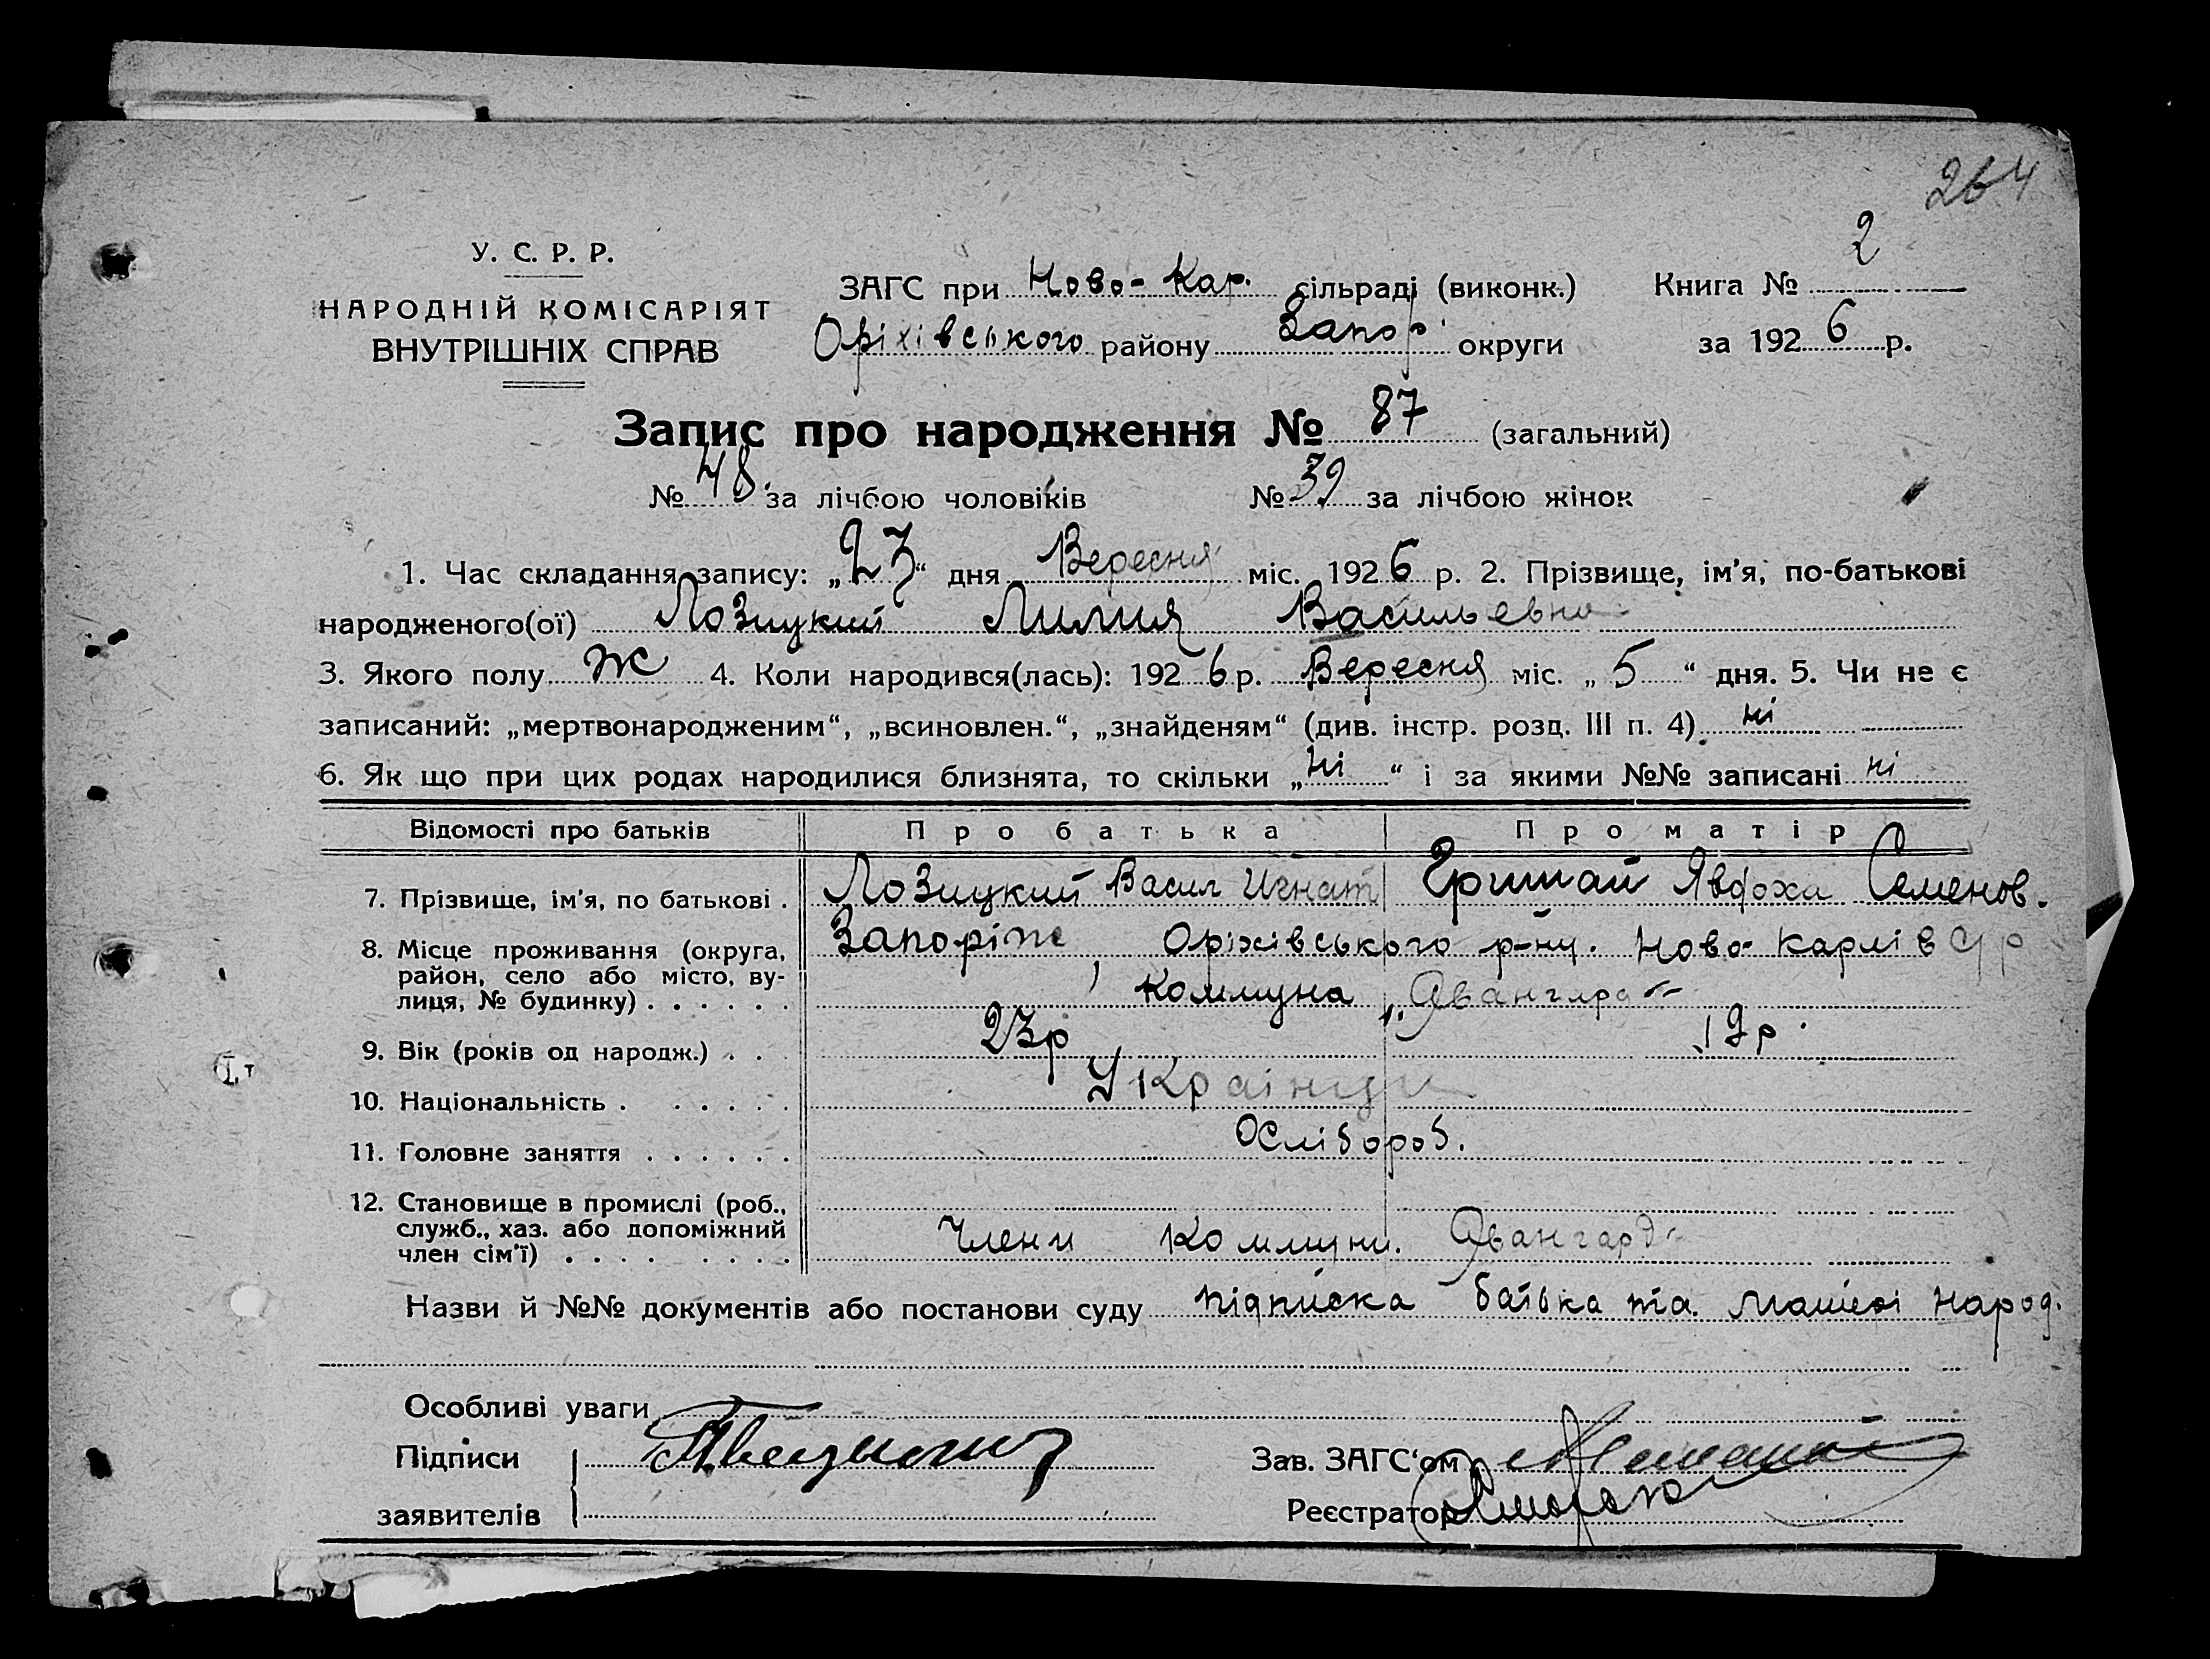 264
У. С. Р. Р.
НАРОДНІЙ КОМІСАРІЯТ
ВНУТРІШНІХ СПРАВ
ЗАГС при Ново-Кар. сільраді (виконк.)
Оріхівського району Запор округи
Книга № 2
за 1926 р.
Запис про народження № 87 (загальний)
№ 48 за лічбою чоловіків № 39 за лічбою жінок
1. Час складання запису: „23“ дня Вересня міс. 1926 р. 2. Прізвище, ім’я, по-батькові
народженого(ої) Лозицкий Лилия Васильевна
3. Якого полу Ж 4. Коли народився(лась): 1926 р. Вересня міс. „5“ дня. 5. Чи не є
записаний: „мертвонародженим“, „всиновлен.“, „знайденям“ (див. інстр. розд. III п. 4) ні
6. Як що при цих родах народилися близнята, то скільки „ні“ і за якими №№ записані ні
Відомості про батьків Про батька Про матір
7. Прізвище, ім’я, по батькові . Лозицкий Васил Игнат Явдоха Семенов.
8. Місце проживання (округа, Запоріж Оріхівського р-ну. Ново-Карлівс/р
район, село або місто, ву-
лиця, № будинку) . . . . . . Коммуна „Авангард“
9. Вік (років од народж.) . . 23р 19р.
10. Національність . . . . . . Українци
11. Головне заняття . . . . . .
12. Становище в промислі (роб.,
служб., хаз. або допоміжний Члени Коммуни. Авангард
член сім’ї) . . . . . . . .
Назви й №№ документів або постанови суду підписка батька та народ.
Особливі уваги
Підписи
заявителів
Зав. ЗАГС‘ом
Реєстратор